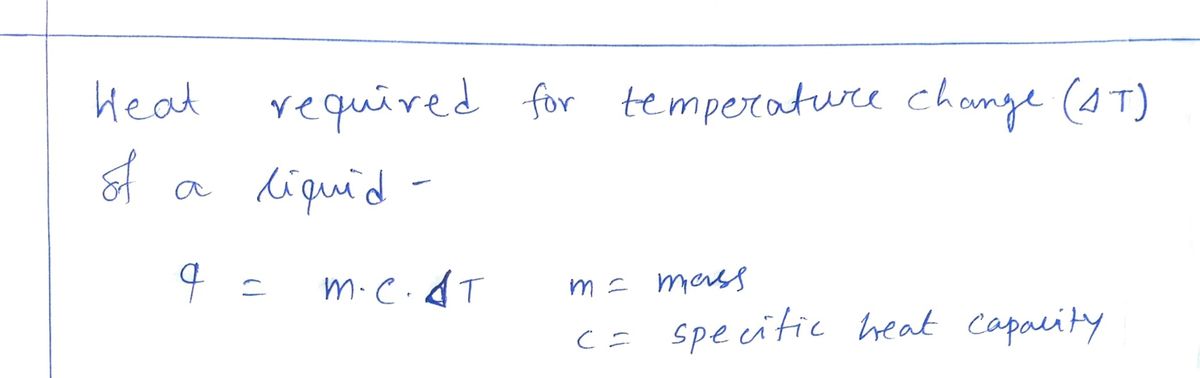 Heat required for temperature change (ΔT)
of a liquid -
q = m.c.ΔT m = mass
c = specific heat capacity